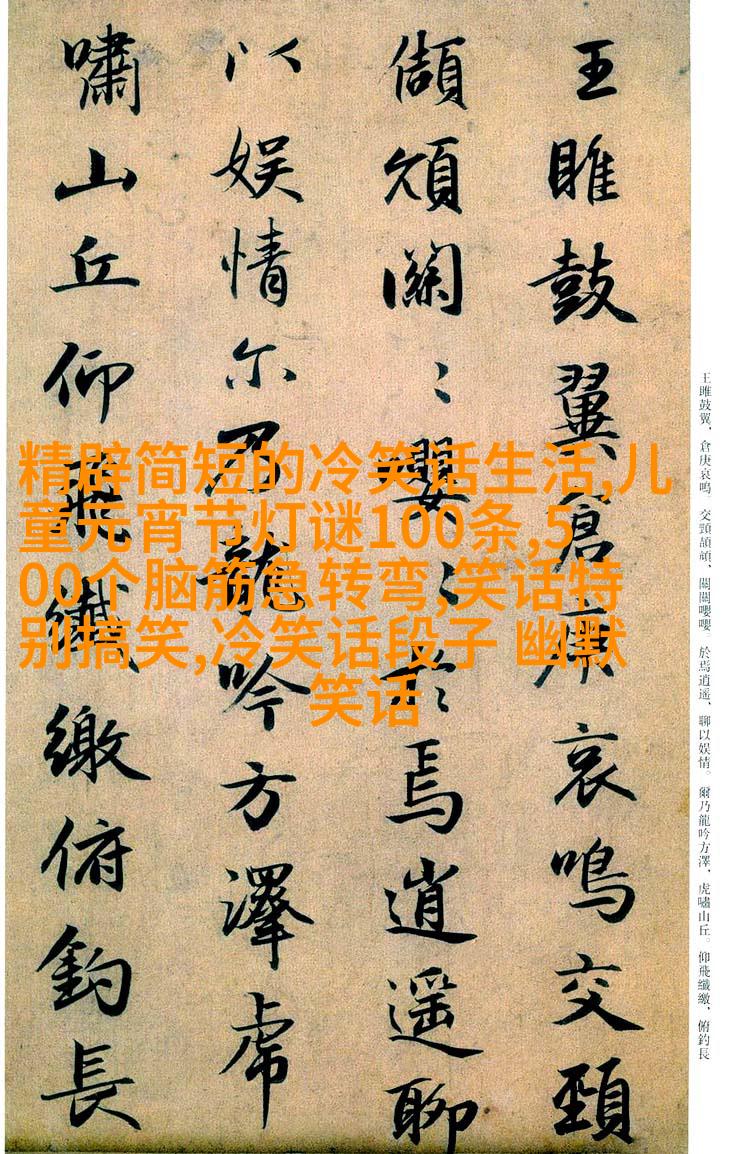 精辟简短的冷笑话生活,儿
童元宵节灯谜100条,5
00个脑筋急转弯,笑话特
别搞笑,冷笑话段子 幽默
笑话
王雎鼓翼倉庚哀鳴交頸
頡頏關〻嚶〻於焉逍遥聊
以娱情尔乃龍吟方澤虎
嘯山丘仰飛纖繳俯釣長
王雎鼓翼，倉庚哀鳴。交頸頡頏，關關嚶嚶。於焉逍遥，聊以娱情。爾乃龍吟方澤，虎嘯山丘。仰飛纖繳，俯釣長